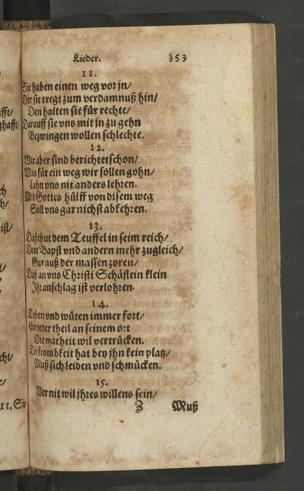 Lieder. 353
11.
Sie haben einen weg vor jn/
Der sie tregt zum verdamnuß hin/
Den halten sie für rechte/
Darauff sie vns mit jn zu gehn
Bezwingen wollen schlechte.
12.
Wir aber sind berichtet schon/
Was für ein weg wir sollen gohn/
Lahn vns nit anders lehren.
Mit Gottes hülff von disem weg
Soll vns gar nichst abkehren.
13.
Daß thut dem Teuffel in seim reich/
Dem Bapst vnd andern mehr zugleich/
Gar auß der massen zoren/
Daß an vns Christi Schäflein klein
Jhr anschlag ist verlohren.
14.
Toben vnd wüten immer fort/
Ein jeder theil an seinem ort
Die warheit wil vertrücken.
Die frombkeit hat bey jhn kein platz/
Muß sich leiden vnd schmücken.
15.
Wer nit wil jhres willens sein/
Z Muß